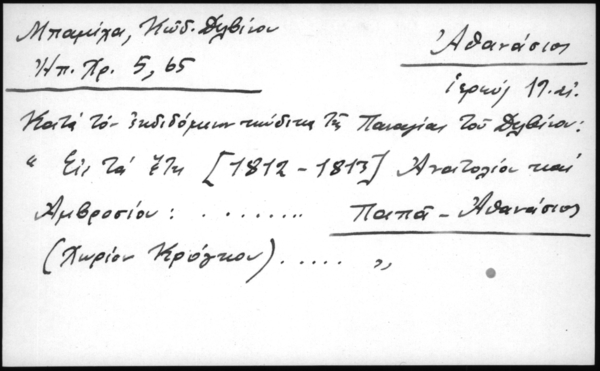 Μπαμίχα, Κώδ. Δελβίνου
Ἠπ. Χρ. 5, 65
Ἀθανάσιος
ἱερεύς 19.αἰ.
Κατά τόν ἐκδιδόμενον κώδικα τῆς Παναγίας τοῦ Δελβίνου:
“ Εἰς τά ἔτη [1812 - 1813] Ἀνατολίου καί
Ἀμβροσίου: ........ Παπᾶ - Ἀθανάσιος
(Χωρίον Κρόγκου) ..... „